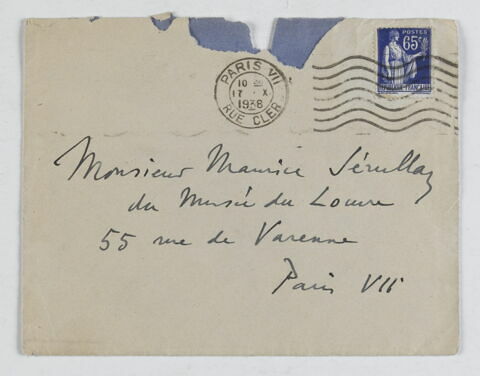 PARIS VII
10 30
17 - X
1938
RUE CLER
POSTES
65c
REPUBLIQUE FRANCAISE
Monsieur Maurice Sérullaz
du Musée du Louvre
55 rue de Varenne
Paris VII